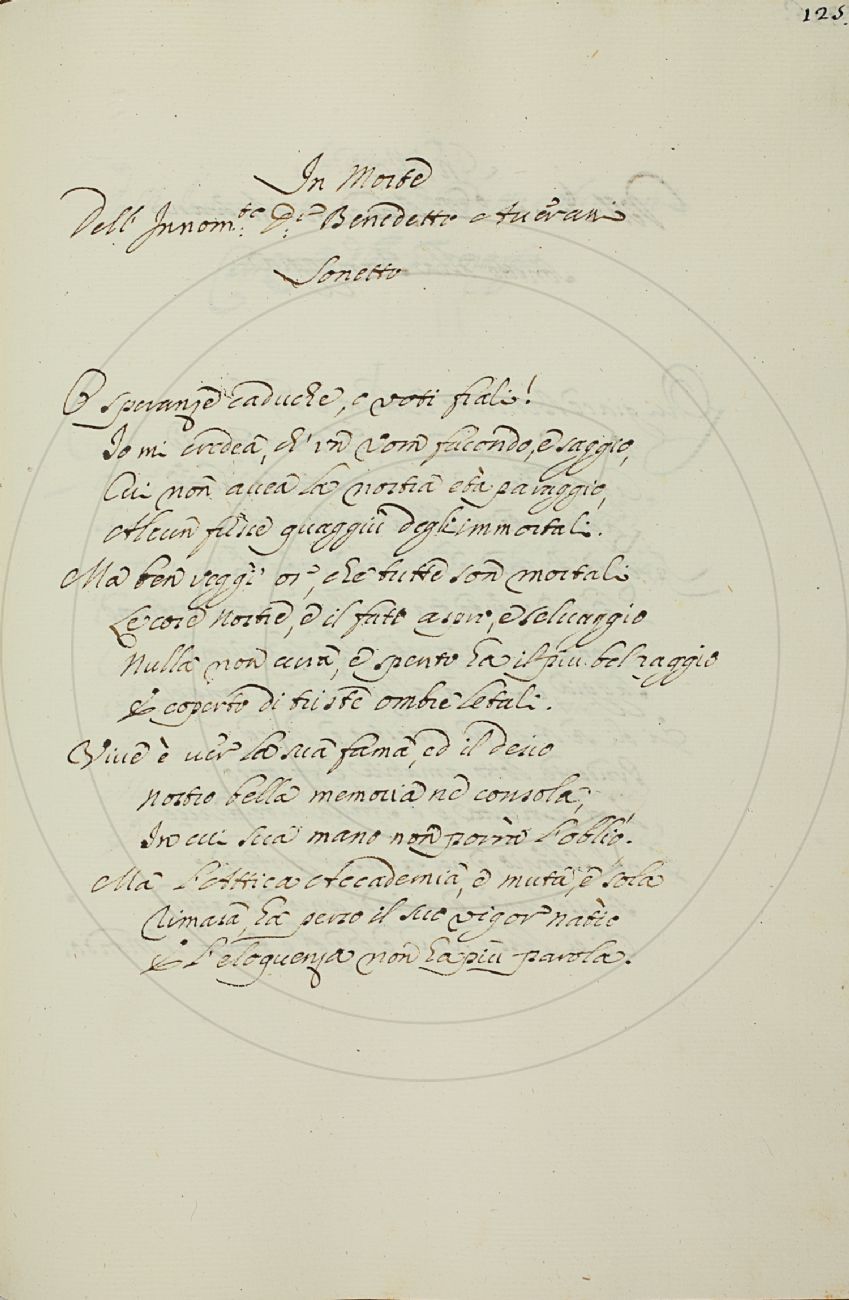 125.
In Morte
Dell' Innom.to D.r Benedetto Averani
Sonetto
O speranze caduche, o voti frali!
Io mi credea, ch' un Uom facondo, e saggio,
Cui non avea la nostra età paraggio,
Alcun fusse quaggiù degl'immortali.
Ma ben veggi' or, che tutte son mortali
Le cose nostre, e il fato aspro, e selvaggio
Nulla non cura, e spento ha il più bel raggio
E coperto di triste ombre letali.
Vive è ver la sua fama, ed il desio
Nostro bella memoria ne consola,
In cui sua mano non porrà l'oblio.
Ma l'Attica Accademia, e muta, e sola
Rimasa, ha perso il suo vigor natio
E l'eloquenza non ha più parola.